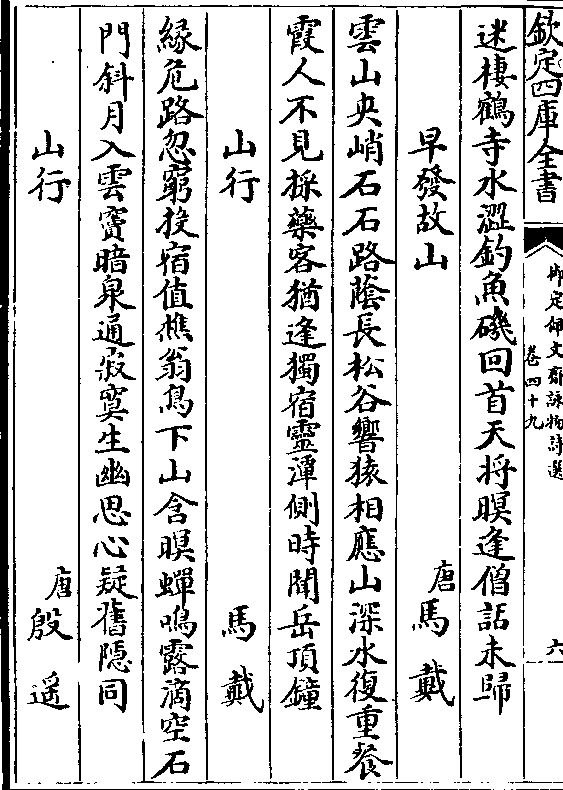 欽定四庫全書
御定佩文齋詠物詩選
卷四十九
六
迷棲鶴寺水澀釣魚磯回首天將暝逢僧話未歸
早發故山
唐馬戴
雲山夾峭石石路蔭長松谷響猿相應山深水復重餐
霞人不見採藥客猶逢獨宿靈潭側時聞岳頂鐘
山行
馬戴
緣危路忽窮投宿值樵翁鳥下山含暝蟬鳴露滴空石
門斜月入雲竇暗泉通寂寞生幽思心疑舊隱同
山行
唐殷遙